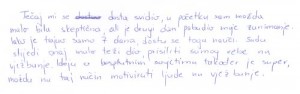 Tečaj mi se dosta svidio, u početku sam možda
malo bila skeptična ali je drugi dan pobudio moje zanimanje.
Iako je trajao samo 7 dana dosta se toga nauči. Sada
slijedi onaj malo teži dio prisiliti samog sebe na
vježbanje. Ideja o besplatnim majicama također je super,
možda na taj način motivirati ljude na vježbanje.